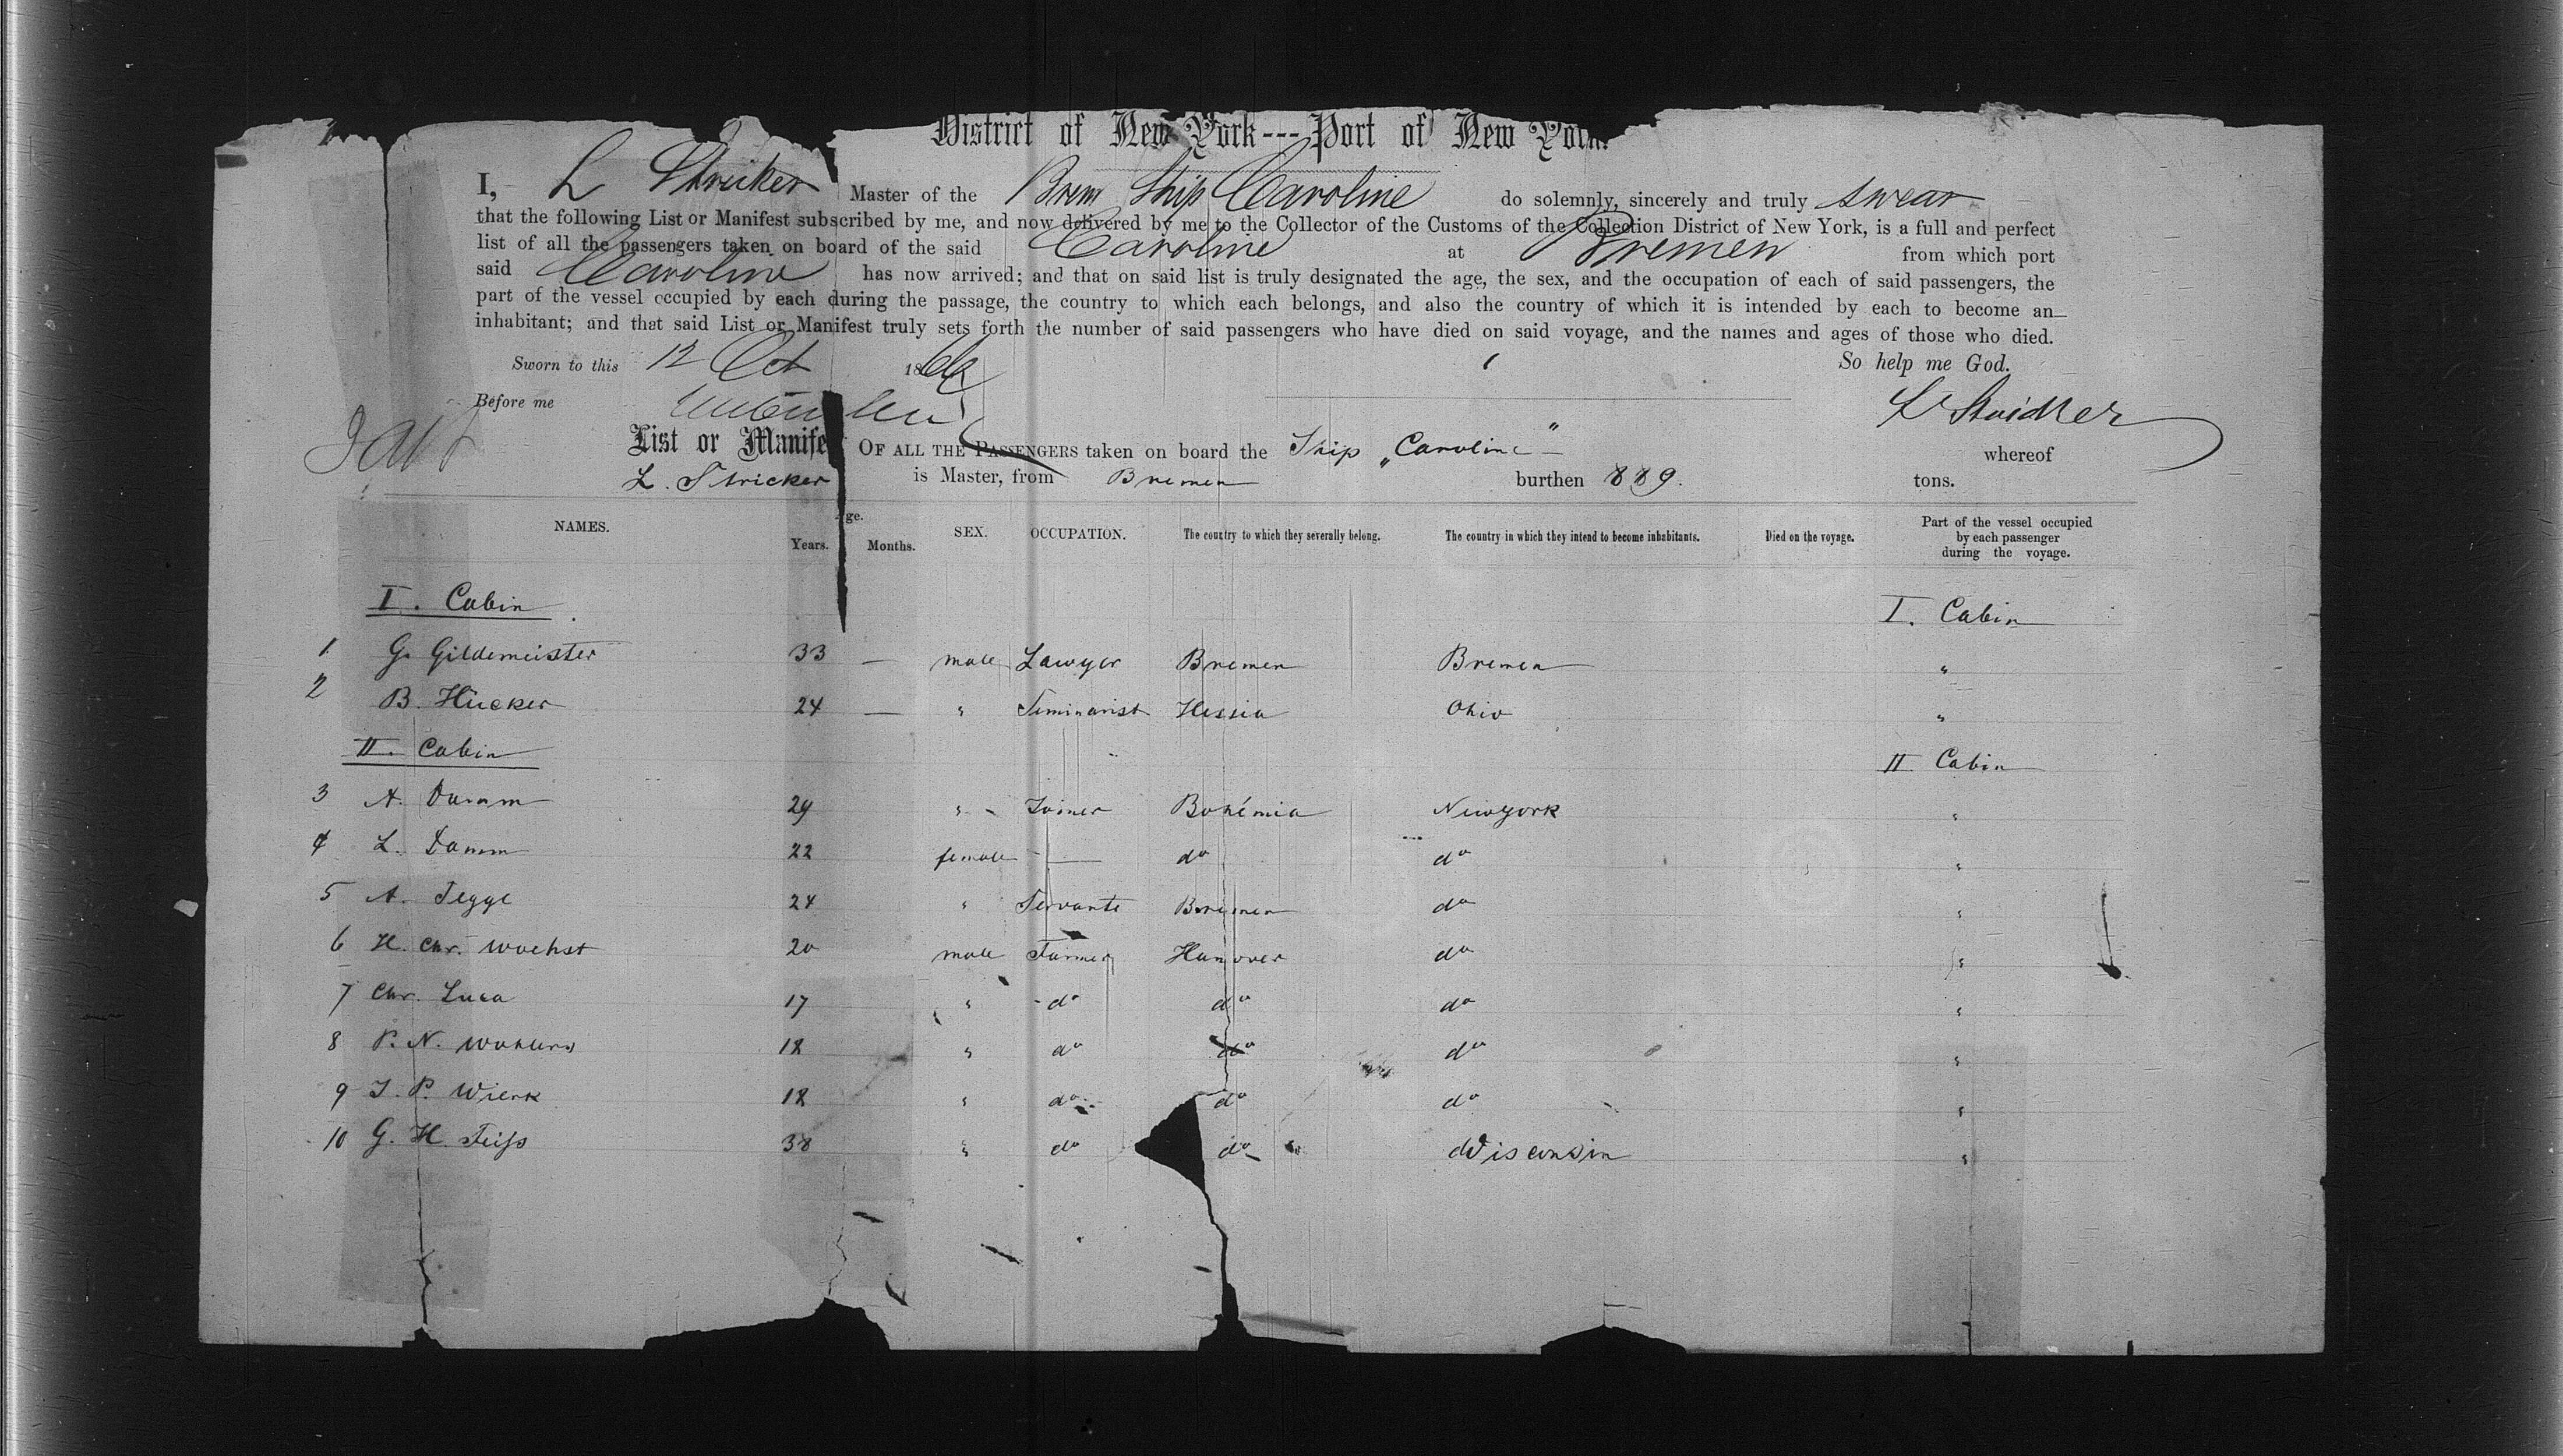 District of New York---Port of New York.
I, L Stricker Master of the Brem Ship Caroline do solemnly, sincerely and truly swear
that the following List or Manifest subscribed by me, and now delivered by me to the Collector of the Customs of the Collection District of New York, is a full and perfect
list of all the passengers taken on board of the said Caroline at Bremen from which port
said Caroline has now arrived; and that on said list is truly designated the age, the sex, and the occupation of each of said passengers, the
part of the vessel occupied by each during the passage, the country to which each belongs, and also the country of which it is intended by each to become an
inhabitant; and that said List or Manifest truly sets forth the number of said passengers who have died on said voyage, and the names and ages of those who died.
Sworn to this 12 Oct 1866 So help me God.
Before me
L Stricker
List or Manife OF ALL THE PASSENGERS taken on board the Ship „Caroline" whereof
L. Stricker is Master, from Bremen burthen 889. tons.
NAMES. Age. Years. Months. SEX. OCCUPATION. The country to which they severally belong. The country in which they intend to become inhabitants. Died on the voyage. Part of the vessel occupied by each passenger during the voyage.
I. Cabin I. Cabin
1 G. Gildemeister 33 — male Lawyer Bremen Bremen "
2 B. Hücker 24 — " Seminarist Hessia Ohio "
II. Cabin II Cabin
3 A. Damm 29 " Joiner Bohémia Newyork "
4 L. Damm 22 female — do do "
5 A. Tegge 24 " Servante Bremen do "
6 H. Chr. 20 male Farmer Hanover do "
7 Chr. Luca 17 " do do do "
8 P. N. Wohlers 18 " do do do "
9 J. P. Wierk 18 " do do do "
10 G. H. 38 " do do Wisconsin "